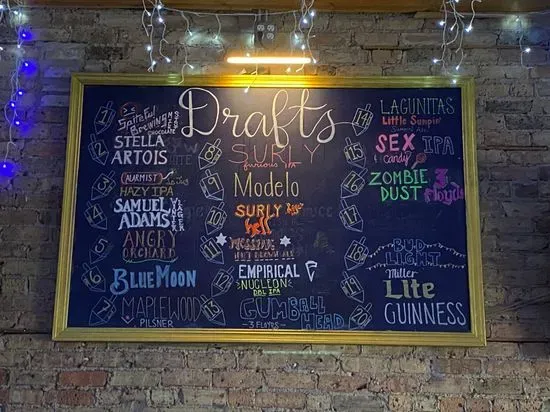 Drafts
1
Spiteful
Brewing
CHOCOLATE
2
STELLA
ARTOIS
3
ALARMIST
HAZY IPA
4
SAMUEL
ADAMS
5
ANGRY
ORCHARD
6
BLUE MOON
7
MAPLEWOOD
PILSNER
8
SURLY
furious IPA
9
Modelo
10
SURLY
hell
11
12
EMPIRICAL
NUCLEON
DBL IPA
13
GUMBALL
HEAD
3 FLOYDS
14
LAGUNITAS
Little Sumpin'
Sumpin' Ale
15
SEX IPA
candy
16
ZOMBIE
DUST
3 Floyds
17
18
BUD
LIGHT
19
Miller
Lite
20
GUINNESS